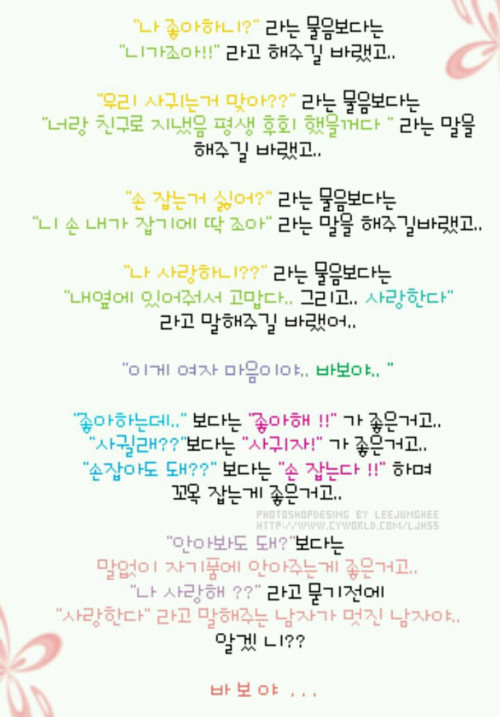 "나 좋아하니?" 라는 물음보다는
"니가조아!!" 라고 해주길 바랬고..
"우리 사귀는거 맞아??" 라는 물음보다는
"너랑 친구로 지냈음 평생 후회 했을꺼다 " 라는 말을
해주길 바랬고..
"손 잡는거 싫어?" 라는 물음보다는
"니 손 내가 잡기에 딱 조아" 라는 말을 해주길바랬고..
"나 사랑하니??" 라는 물음보다는
"내옆에 있어줘서 고맙다.. 그리고.. 사랑한다"
라고 말해주길 바랬어..
"이게 여자 마음이야.. 바보야.. "
"좋아하는데.." 보다는 "좋아해 !!" 가 좋은거고..
"사귈래??"보다는 "사귀자!" 가 좋은거고..
"손잡아도 돼??" 보다는 "손 잡는다 !!" 하며
꼬옥 잡는게 좋은거고..
PHOTOSHOPDESING BY LEEJUNGHEE
HTTP://WWW.CYWORLD.COM/LJH55
"안아봐도 돼?"보다는
말없이 자기품에 안아주는게 좋은거고..
"나 사랑해 ??" 라고 묻기전에
"사랑한다" 라고 말해주는 남자가 멋진 남자야..
알겠 니??
바 보 야 ...